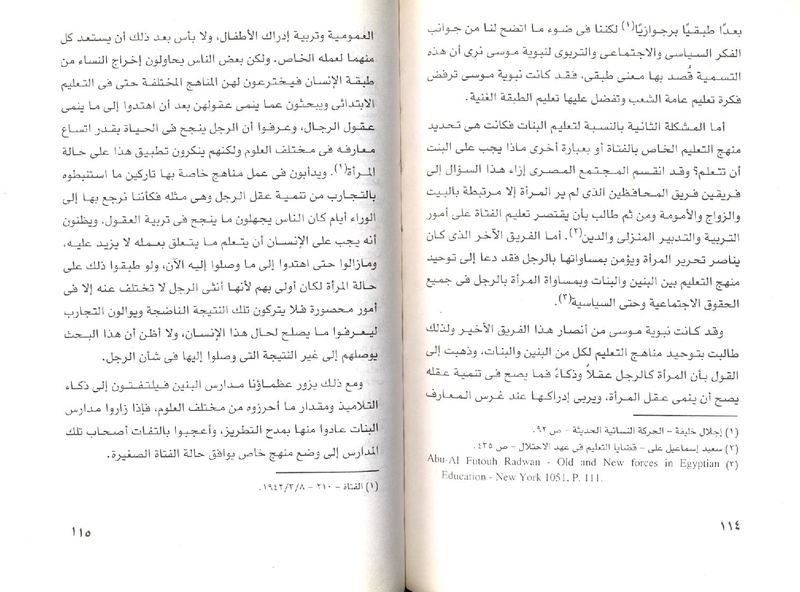 بعدًا طبقيًا برجوازيًا(١) لكننا فى ضوء ما اتضح لنا من جوانب
الفكر السياسى والاجتماعى والتربوى لنبوية موسى نرى أن هذه
التسمية قُصد بها معنى طبقى، فقد كانت نبوية موسى ترفض
فكرة تعليم عامة الشعب وتفضل عليها تعليم الطبقة الغنية.
أما المشكلة الثانية بالنسبة لتعليم البنات فكانت هى تحديد
منهج التعليم الخاص بالفتاة أو بعبارة أخرى ماذا يجب على البنت
أن تتعلم؟ وقد انقسم المجتمع المصرى إزاء هذا السؤال إلى
فريقين فريق المحافظين الذى لم ير المرأة إلا مرتبطة بالبيت
والزواج والأمومة ومن ثم طالب بأن يقتصر تعليم الفتاة على أمور
التربية والتدبير المنزلى والدين(٢). أما الفريق الآخر الذى كان
يناصر تحرير المرأة ويؤمن بمساواتها بالرجل فقد دعا إلى توحيد
منهج التعليم بين البنين والبنات وبمساواة المرأة بالرجل فى جميع
الحقوق الاجتماعية وحتى السياسية(٣).
وقد كانت نبوية موسى من أنصار هذا الفريق الأخير ولذلك
طالبت بتوحيد مناهج التعليم لكل من البنين والبنات، وذهبت إلى
القول بأن المرأة كالرجل عقلاً وذكاءً فما يصح فى تنمية عقله
يصح أن ينمى عقل المرأة، ويربى إدراكها عند غرس المعارف
(١) إجلال خليفة – الحركة النسائية الحديثة – ص ٩٢.
(٢) سعيد إسماعيل على – قضايا التعليم فى عهد الاحتلال – ص ٤٣٥.
(٣) Abu-Al Futouh Radwan - Old and New forces in Egyptian
Education - New York 1051. P. 111.
١١٤
العمومية وتربية إدراك الأطفال، ولا بأس بعد ذلك أن يستعد كل
منهما لعمله الخاص. ولكن بعض الناس يحاولون إخراج النساء من
طبقة الإنسان فيخترعون لهن المناهج المختلفة حتى فى التعليم
الابتدائى ويبحثون عما ينمى عقولهن بعد أن اهتدوا إلى ما ينمى
عقول الرجال، وعرفوا أن الرجل ينجح فى الحياة بقدر اتساع
معارفه فى مختلف العلوم ولكنهم ينكرون تطبيق هذا على حالة
المرأة(١). ويدأبون فى عمل مناهج خاصة بها تاركين ما استنبطوه
بالتجارب من تنمية عقل الرجل وهى مثله فكأننا نرجع بها إلى
الوراء أيام كان الناس يجهلون ما ينجح فى تربية العقول، ويظنون
أنه يجب على الإنسان أن يتعلم ما يتعلق بعمله لا يزيد عليه،
ومازالوا حتى اهتدوا إلى ما وصلوا إليه الآن، ولو طبقوا ذلك على
حالة المرأة لكان أولى بهم لأنها أنثى الرجل لا تختلف عنه إلا فى
أمور محصورة فلا يتركون تلك النتيجة الناضجة ويوالون التجارب
ليعرفوا ما يصلح لحال هذا الإنسان، ولا أظن أن هذا البحث
يوصلهم إلى غير النتيجة التى وصلوا إليها فى شأن الرجل.
ومع ذلك يزور عظماؤنا مدارس البنين فيلتفتون إلى ذكاء
التلاميذ ومقدار ما أحرزوه من مختلف العلوم، فإذا زاروا مدارس
البنات عادوا منها بمدح التطريز، وأعجبوا بالتفات أصحاب تلك
المدارس إلى وضع منهج خاص يوافق حالة الفتاة الصغيرة.
(١) الفتاة – ٢١٠ – ١٩٤٢/٣/٨.
١١٥